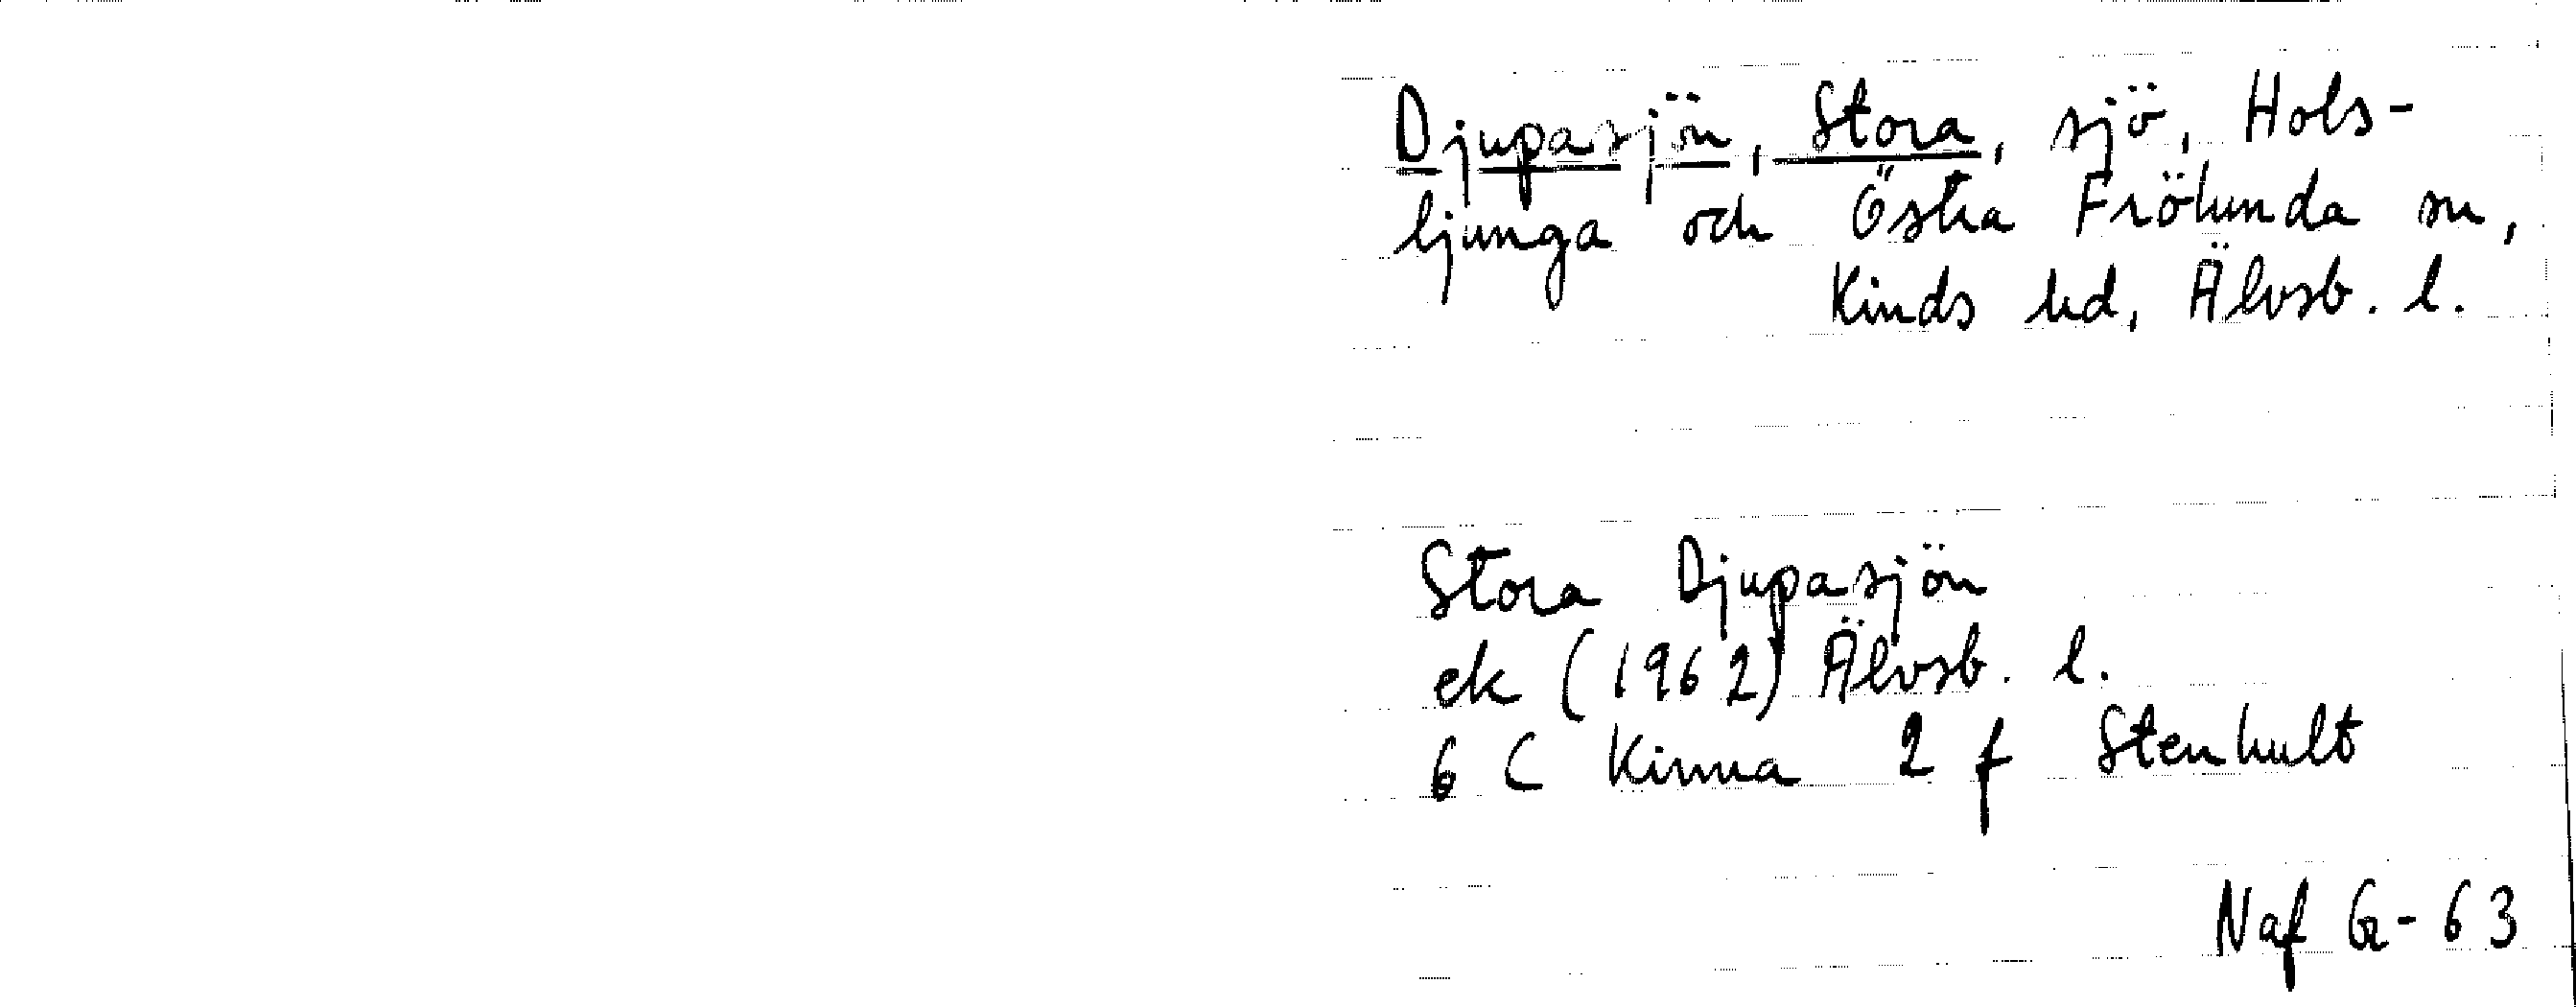 Djupasjön, Stora, sjö, Hols-
ljunga och Östra Frölunda snr,
Kinds hd, Älvsb. l.
Stora Djupasjön
ek (1962) Älvsb. l.
6 C Kinna 2 f Stenhult
Naf G-63